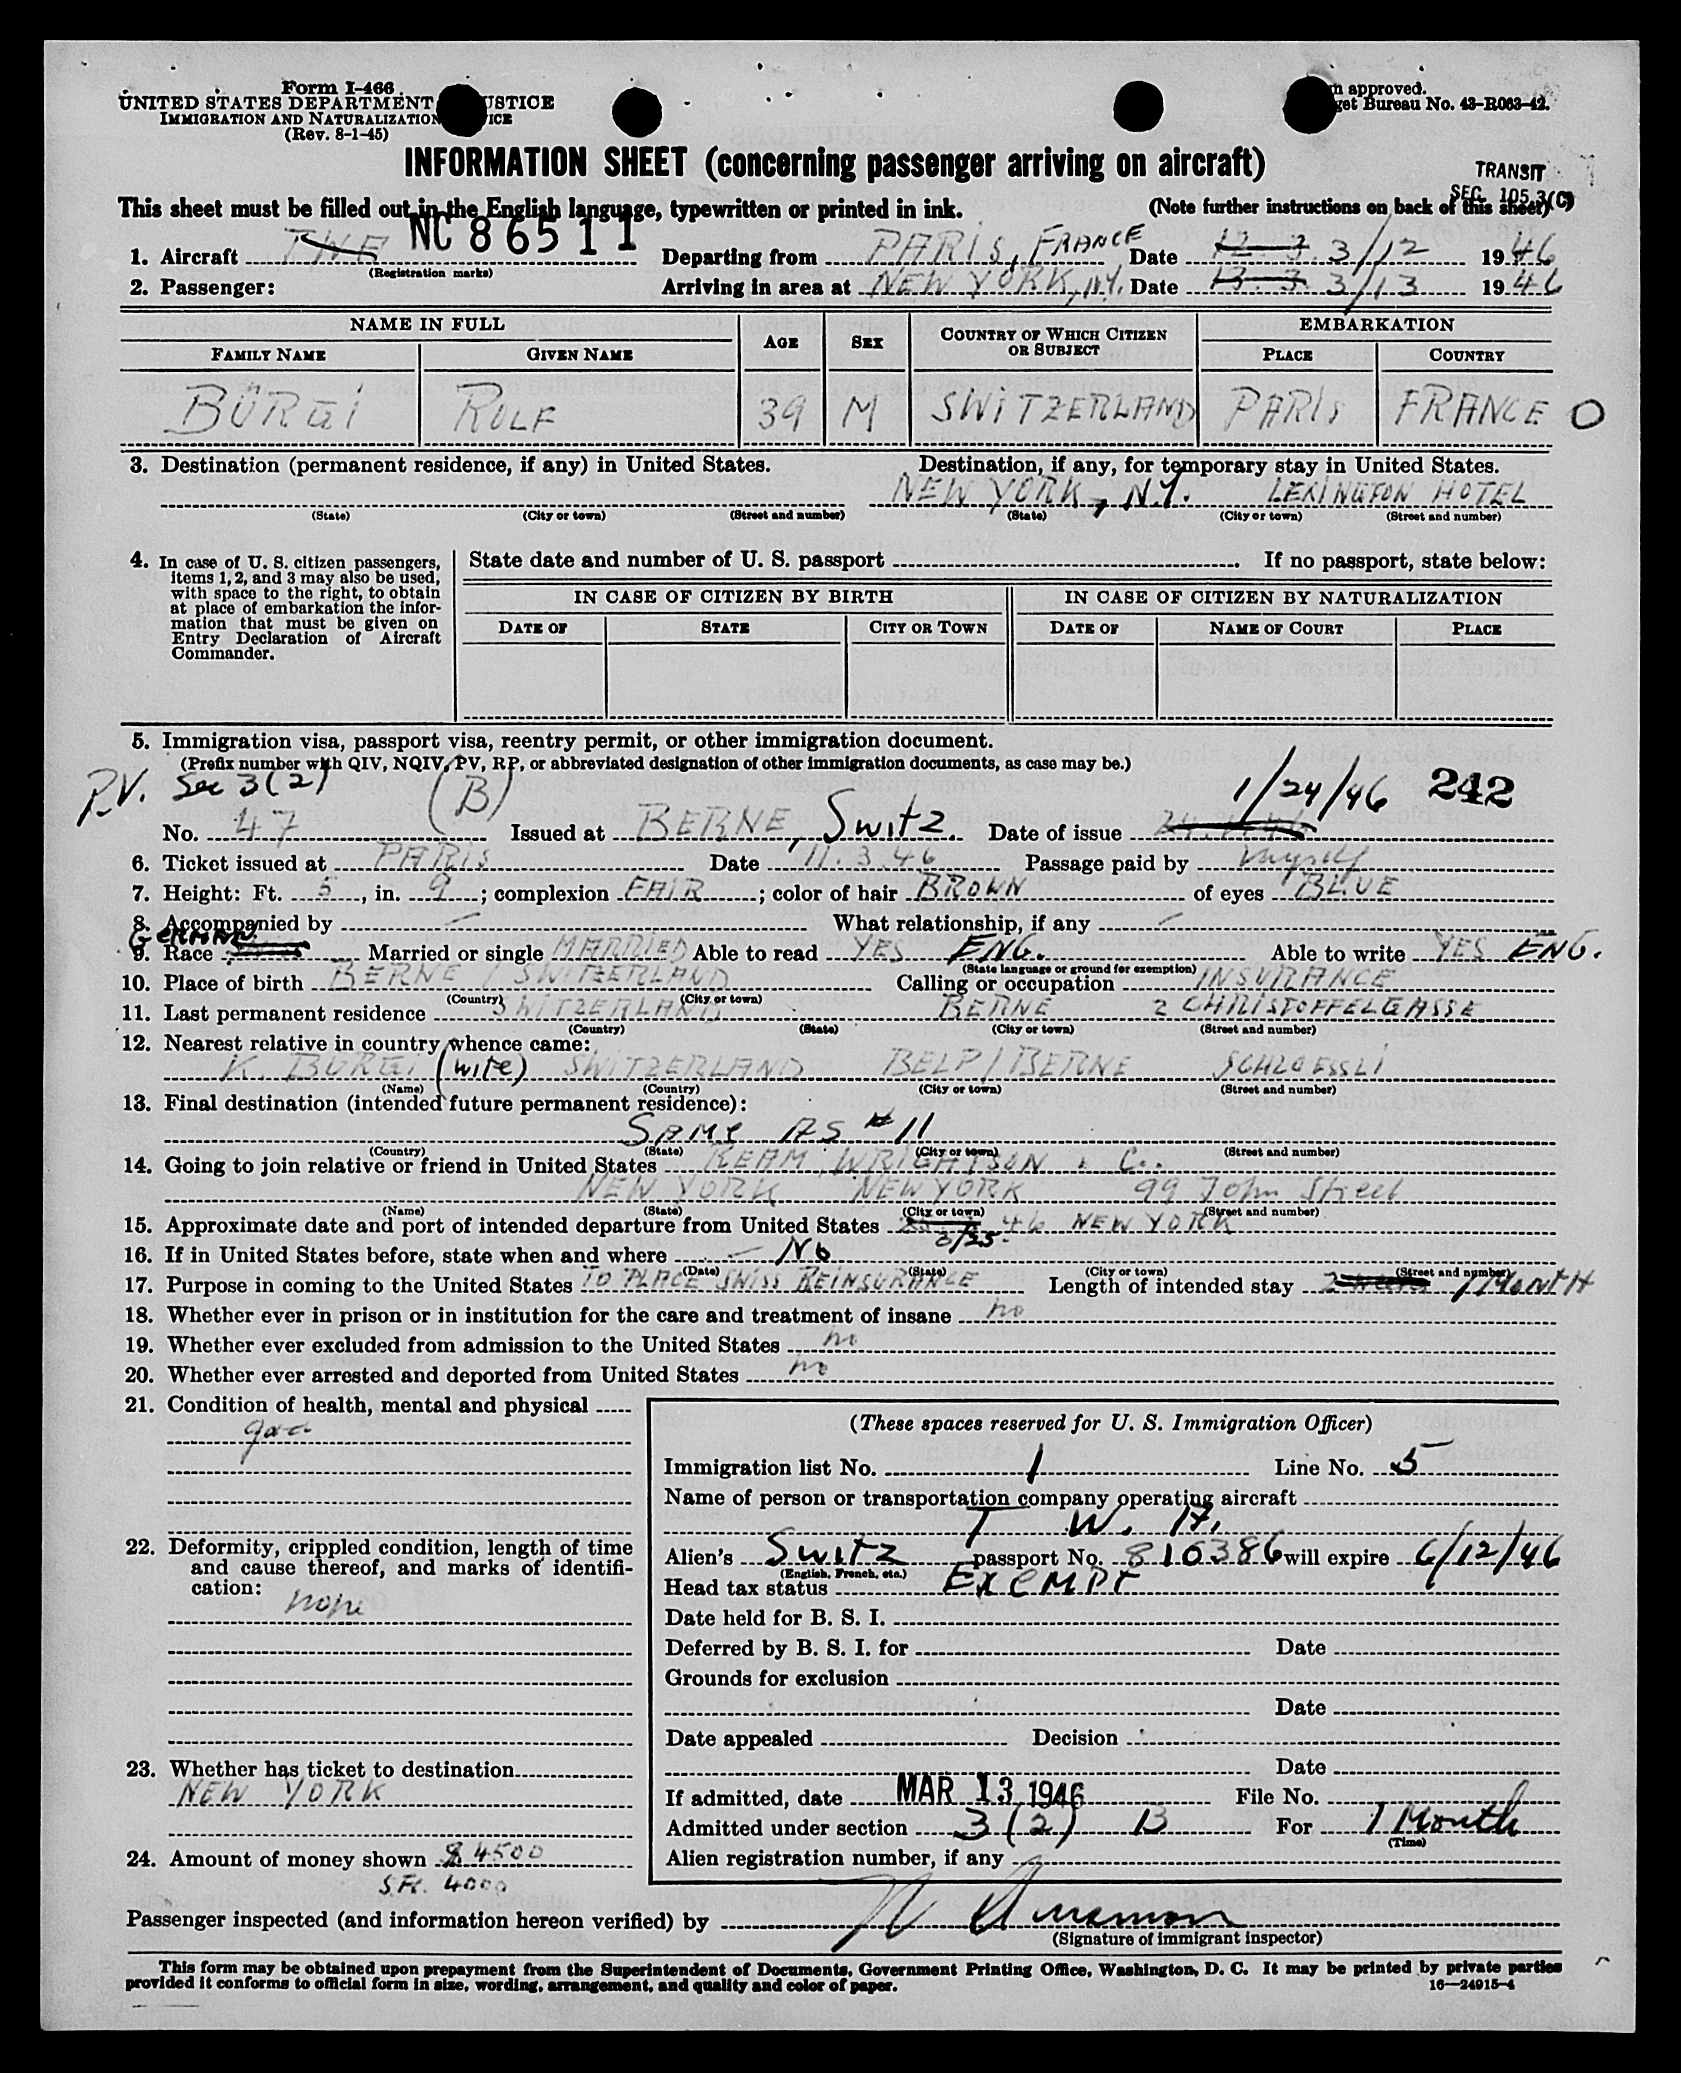 Form I-466
UNITED STATES DEPARTMENT JUSTICE
IMMIGRATION AND NATURALIZATION SERVICE
(Rev. 8-1-45)
approved.
Bureau No. 43-R063-42.
INFORMATION SHEET (concerning passenger arriving on aircraft)
TRANSIT
SEC. 105.3(C)
This sheet must be filled out in the English language, typewritten or printed in ink. (Note further instructions on back of this sheet)
1. Aircraft NC 86511 Departing from PARIS, FRANCE Date 12. 3. 3/12 1946
(Registration marks)
2. Passenger: Arriving in area at NEW YORK, N.Y. Date 13. 3. 3/13 1946
NAME IN FULL AGE SEX COUNTRY OF WHICH CITIZEN OR SUBJECT EMBARKATION
FAMILY NAME GIVEN NAME PLACE COUNTRY
BÜRGI ROLF 39 M SWITZERLAND PARIS FRANCE O
3. Destination (permanent residence, if any) in United States. Destination, if any, for temporary stay in United States.
NEW YORK, N.Y. LEXINGTON HOTEL
(State) (City or town) (Street and number) (State) (City or town) (Street and number)
4. In case of U. S. citizen passengers, items 1, 2, and 3 may also be used, with space to the right, to obtain at place of embarkation the information that must be given on Entry Declaration of Aircraft Commander.
State date and number of U. S. passport If no passport, state below:
IN CASE OF CITIZEN BY BIRTH IN CASE OF CITIZEN BY NATURALIZATION
DATE OF STATE CITY OR TOWN DATE OF NAME OF COURT PLACE
5. Immigration visa, passport visa, reentry permit, or other immigration document.
(Prefix number with QIV, NQIV, PV, RP, or abbreviated designation of other immigration documents, as case may be.)
P.V. Sec 3(2) (B) 1/24/46 242
No. 47 Issued at BERNE, Switz Date of issue
6. Ticket issued at PARIS Date 11. 3. 46 Passage paid by myself
7. Height: Ft. 5, in. 9; complexion FAIR; color of hair BROWN of eyes BLUE
8. Accompanied by — What relationship, if any —
GERMAN
9. Race Married or single MARRIED Able to read YES ENG. Able to write YES ENG.
(State language or ground for exemption)
10. Place of birth BERNE / SWITZERLAND Calling or occupation INSURANCE
(Country) (City or town)
11. Last permanent residence SWITZERLAND, BERNE 2 CHRISTOFFELGASSE
(Country) (State) (City or town) (Street and number)
12. Nearest relative in country whence came:
K. BÜRGI (wife) SWITZERLAND BELP / BERNE SCHLOESSLI
(Name) (Country) (City or town) (Street and number)
13. Final destination (intended future permanent residence):
SAME AS #11
(Country) (State) (City or town) (Street and number)
14. Going to join relative or friend in United States WRIGHTSON
NEW YORK NEW YORK 99 John Street
(Name) (State) (City or town) (Street and number)
15. Approximate date and port of intended departure from United States 3/25. 46 NEW YORK
16. If in United States before, state when and where — No
(Date) (State) (City or town) (Street and number)
17. Purpose in coming to the United States TO PLACE SWISS REINSURANCE Length of intended stay 2 weeks 1 MONTH
18. Whether ever in prison or in institution for the care and treatment of insane no
19. Whether ever excluded from admission to the United States no
20. Whether ever arrested and deported from United States no
21. Condition of health, mental and physical
good
22. Deformity, crippled condition, length of time and cause thereof, and marks of identification:
none
23. Whether has ticket to destination
NEW YORK
24. Amount of money shown $ 4500
S.Fr. 4000
(These spaces reserved for U. S. Immigration Officer)
Immigration list No. 1 Line No. 5
Name of person or transportation company operating aircraft
T. W. A.
Alien's Switz passport No. 810386 will expire 6/12/46
(English, French, etc.)
Head tax status EXEMPT
Date held for B. S. I.
Deferred by B. S. I. for Date
Grounds for exclusion
Date
Date appealed Decision
Date
If admitted, date MAR 13 1946 File No.
Admitted under section 3(2) B For 1 Month
(Time)
Alien registration number, if any
Passenger inspected (and information hereon verified) by
(Signature of immigrant inspector)
This form may be obtained upon prepayment from the Superintendent of Documents, Government Printing Office, Washington, D. C. It may be printed by private parties
provided it conforms to official form in size, wording, arrangement, and quality and color of paper.
16—24915-4